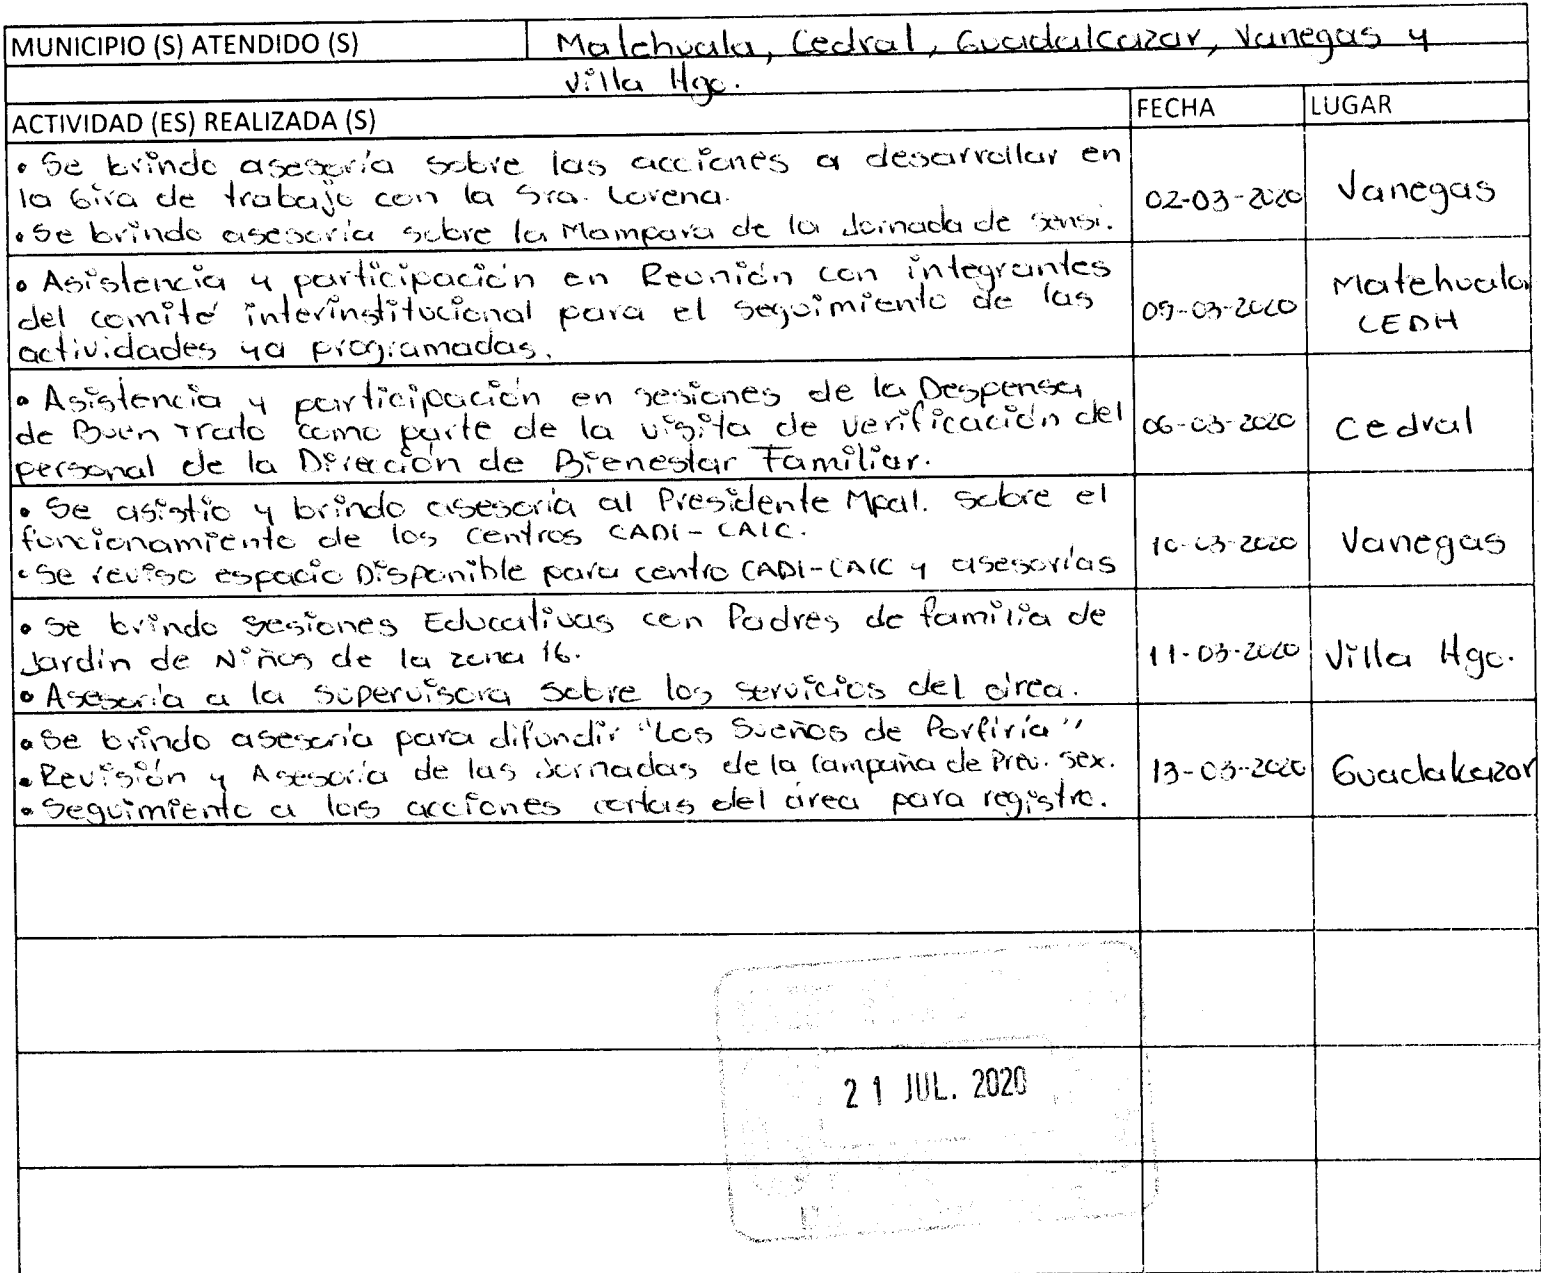 MUNICIPIO (S) ATENDIDO (S) Matehuala, Cedral, Guadalcazar, Vanegas y
Villa Hgo.
ACTIVIDAD (ES) REALIZADA (S) FECHA LUGAR
• Se brindo asesoría sobre las acciones a desarrollar en
la Gira de trabajo con la Sra. Lorena.
• Se brindo asesoría sobre la Mampara de la Jornada de sensi.
02-03-2020 Vanegas
• Asistencia y participación en Reunión con integrantes
del comité interinstitucional para el seguimiento de las
actividades ya programadas.
Matehuala
CEDH
• Asistencia y participación en sesiones de la Despensa
de Buen Trato como parte de la visita de verificación del
personal de la Dirección de Bienestar Familiar.
06-03-2020 Cedral
• Se asistio y brindo asesoría al Presidente Mpal. sobre el
funcionamiento de los centros CADI-CAIC.
• Se reviso espacio Disponible para centro CADI-CAIC y asesorías
10-03-2020 Vanegas
• Se brindo sesiones Educativas con Padres de familia de
Jardín de Niños de la zona 16.
• Asesoría a la supervisora sobre los servicios del área.
11-03-2020 Villa Hgo.
• Se brindo asesoría para difundir "Los Sueños de Porfiria"
• Revisión y Asesoría de las Jornadas de la Campaña de Prev. sex.
• Seguimiento a las acciones del área para registro.
13-03-2020 Guadalcazar
21 JUL. 2020